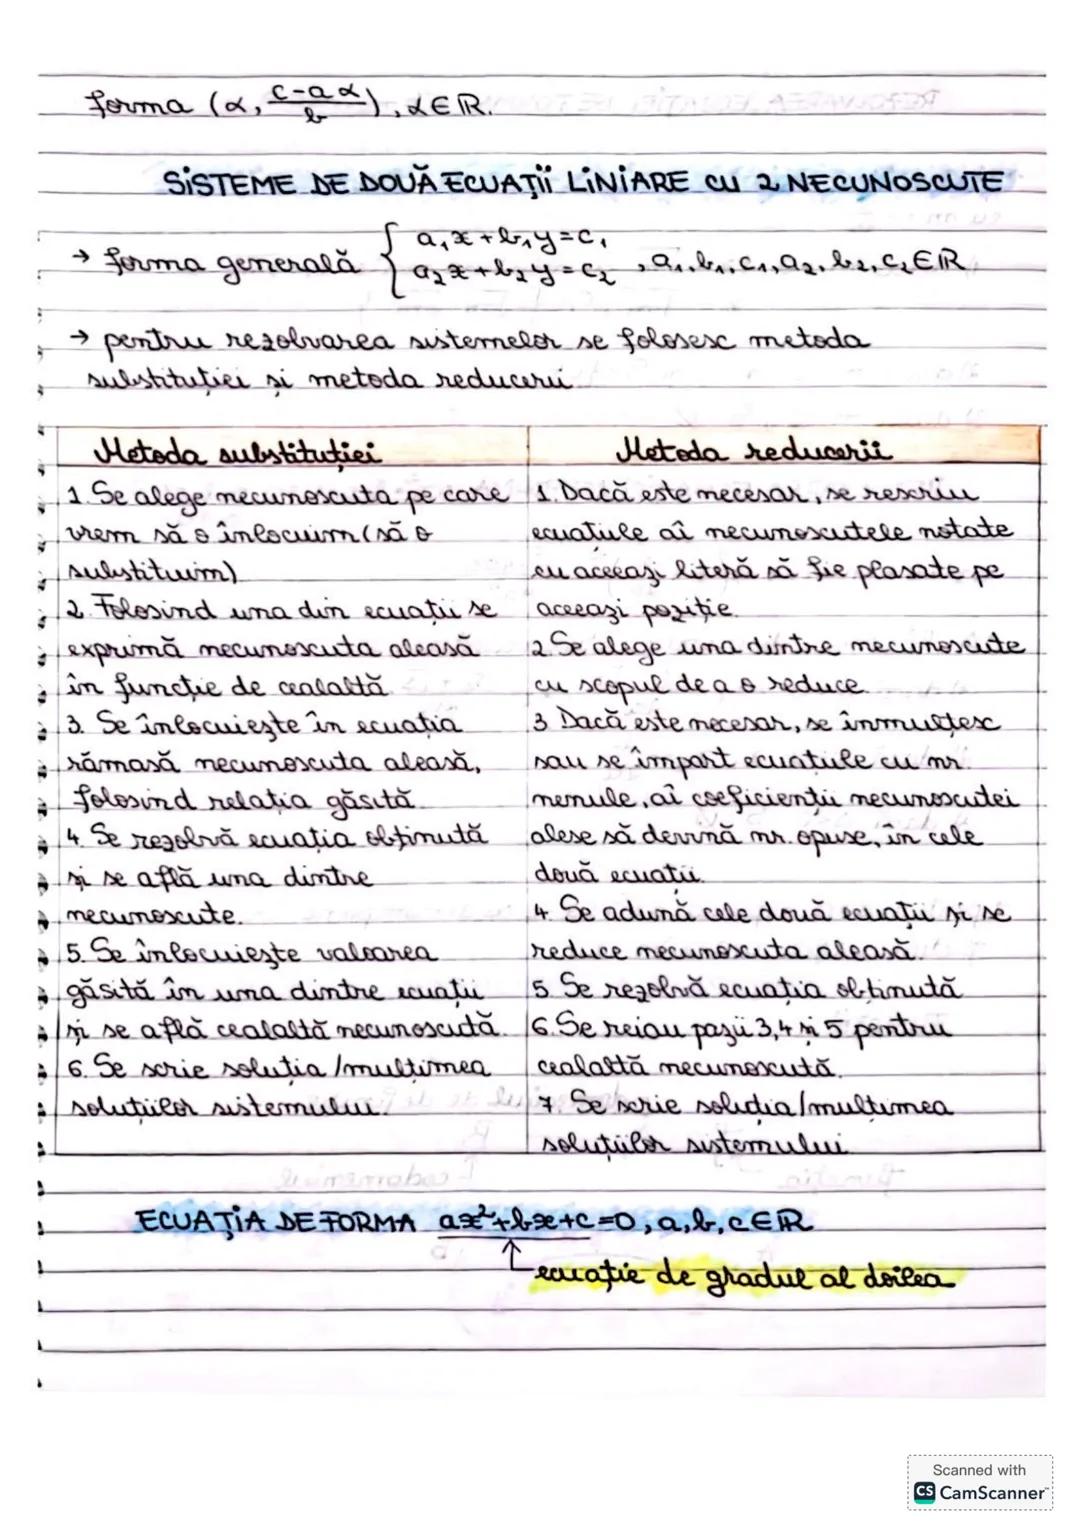 forma (α, c-aα/b), α∈ℝ.
SISTEME DE DOUĂ ECUAȚII LINIARE CU 2 NECUNOSCUTE
→ forma generală { a₁x+b₁y=c₁
a₂x+b₂y=c₂ , a₁,b₁,c₁,a₂,b₂,c₂∈ℝ
→ pentru rezolvarea sistemelor se folosesc metoda
substituției și metoda reducerii
Metoda substituției
1. Se alege necunoscuta pe care
vrem să o înlocuim (să o
substituim)
2. Folosind una din ecuații se
exprimă necunoscuta aleasă
în funcție de cealaltă.
3. Se înlocuiește în ecuația
rămasă necunoscuta aleasă,
folosind relația găsită.
4. Se rezolvă ecuația obținută
și se află una dintre
necunoscute.
5. Se înlocuiește valoarea
găsită în una dintre ecuații
și se află cealaltă necunoscută.
6. Se scrie soluția/mulțimea
soluțiilor sistemului.
Metoda reducerii
1. Dacă este necesar, se rescriu
ecuațiile aî necunoscutele notate
cu aceeași literă să fie plasate pe
aceeași poziție.
2. Se alege una dintre necunoscute
cu scopul de a o reduce.
3 Dacă este necesar, se înmulțesc
sau se împart ecuațiile cu nr.
nenule, aî coeficienții necunoscutei
alese să devină nr. opuse, în cele
două ecuații.
4. Se adună cele două ecuații și se
reduce necunoscuta aleasă.
5. Se rezolvă ecuația obținută
6. Se reiau pașii 3,4 și 5 pentru
cealaltă necunoscută.
7. Se scrie soluția/mulțimea
soluțiilor sistemului
ECUAȚIA DE FORMA ax²+bx+c=0, a,b,c∈ℝ
ecuație de gradul al doilea
Scanned with
CS CamScanner